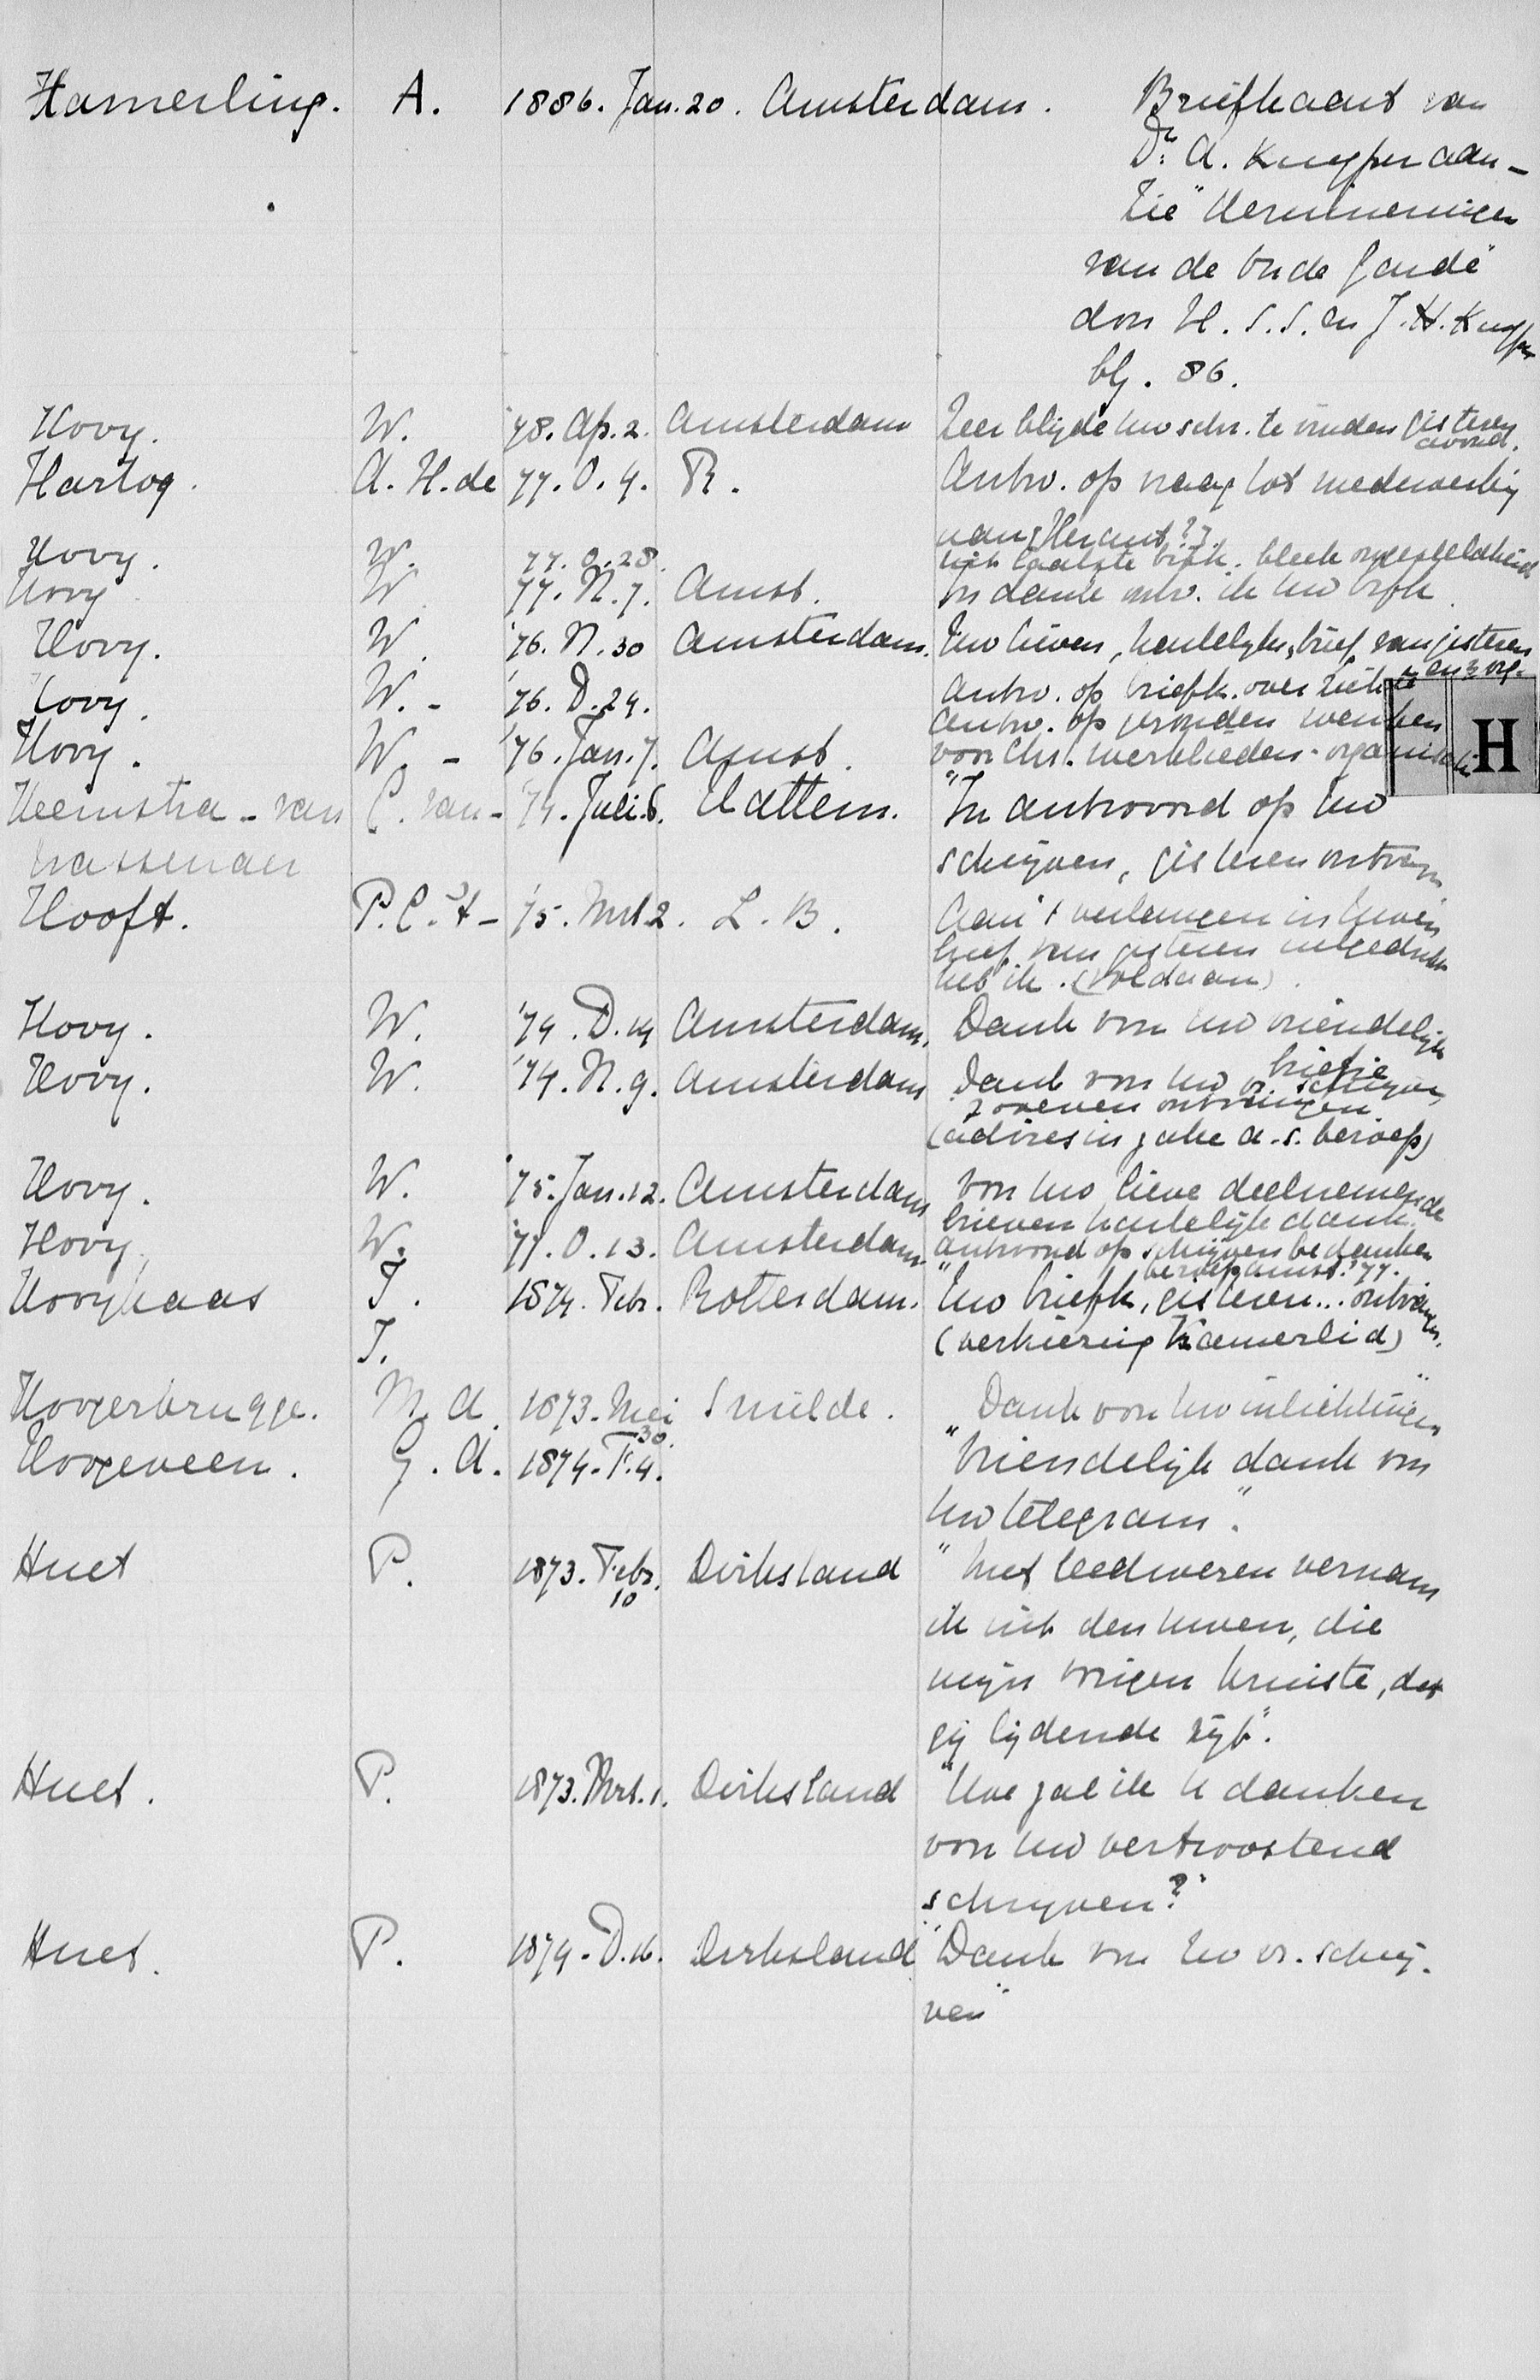 Hamerling. A. 1886. Jan. 20. Amsterdam. Briefkaart van
Dr. A. Kuyper aan-
zie "Herinneringen
van de oude garde"
door H. S. S. en J. H. Kuyper
blz. 86.
Hovy. W. '78. Ap. 2. Amsterdam Zeer blijde Uw schr. te vinden gisteren
avond.
Hartog. A. H. de 77. O. 4. R. Antw. op vraag tot medewerking
aan Heraut?
Hovy. W. 77. O. 28. Uit laatste bleek ongesteldheid
Hovy W. 77. N. 7. Amst. In dank ontv. ik Uw brfk
Hovy. W. '76. N. 30 Amsterdam. Uw lieven, hartelijke, brief van gisteren
Hovy. W. - '76. D. 24. Antw. op briefk. over ziekte
Antw. op wenken
Hovy. W. - '76. Jan. 7. Amst. voor Chr. werklieden-organisatie
H
Heemstra - van C. van - '74. Juli 6. Hattem. "In antwoord op Uw
Wassenaer schrijven, gisteren ontvangen
Hooft. P. C. 't - '75. Mrt 2. L. B. Aan 't verlangen in Uwen
brief van gisteren uitgedrukt
heb ik. (voldaan).
Hovy. W. '74. D. 14 Amsterdam. Dank voor Uw vriendelijk
briefje
Hovy. W. '74. N. 9. Amsterdam Dank voor Uw vr. schrijven
zoeven ontvangen
(adres in zake a.s. beroep)
Hovy. W. '75. Jan. 12. Amsterdam Voor Uw lieve deelnemende
brieven hartelijk dank.
Hovy W. '71. O. 13. Amsterdam. Antwoord op schrijven bedanken
beroep Amst. '71.
Hovykaas T. 1874. Febr. Rotterdam. "Uw briefk, gisteren... ontvangen.
T. (verkiezing Kamerlid)
Hoogerbrugge. M. A. 1873. Mei Smilde. Dank voor Uw inlichtingen"
30.
Hoogeveen. G. A. 1874. F. 4. "Vriendelijk dank voor
Uw telegram".
Huet P. 1873. Febr. Dirksland "Met leedwezen vernam
10
ik uit den Uwen, die
mijn vorigen kruiste, dat
gij lijdende zijt".
Huet. P. 1873. Mrt. 1. Dirksland "Hoe zal ik U danken
voor Uw vertroostend
schrijven?"
Huet. P. 1874. D. 16. Dirksland "Dank voor Uw vr. schrij-
ven"